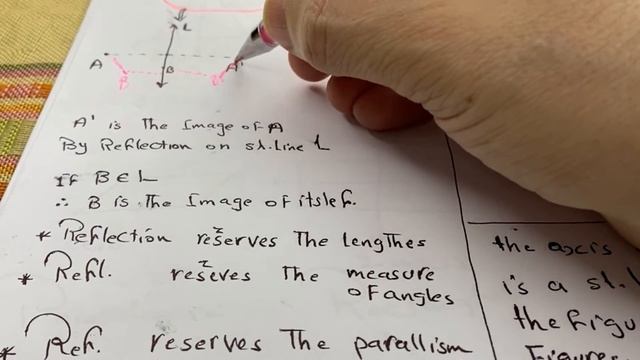 L
A
A'
B
B
B'
A' is The Image of A
By Reflection on st.line L
If B ∈ L
∴ B is The Image of itslef.
* Reflection reserves The lengthes
* Refl. reseves The measure
of angles
* Ref. reserves The parallism
the axis
is a st.
the figu
Figure.